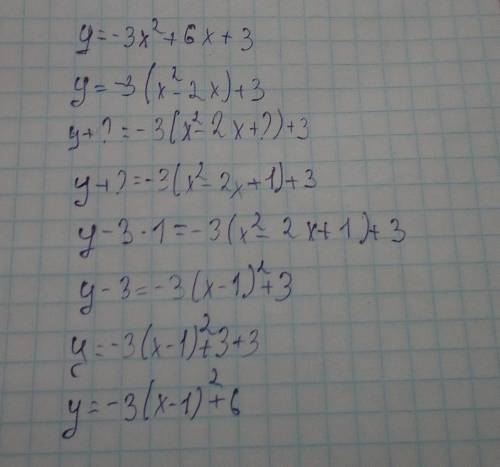 y=-3x²+6x+3
y=-3(x²-2x)+3
y+?=-3(x²-2x+?)+3
y+?=-3(x²-2x+1)+3
y-3·1=-3(x²-2x+1)+3
y-3=-3(x-1)²+3
y=-3(x-1)²+3+3
y=-3(x-1)²+6